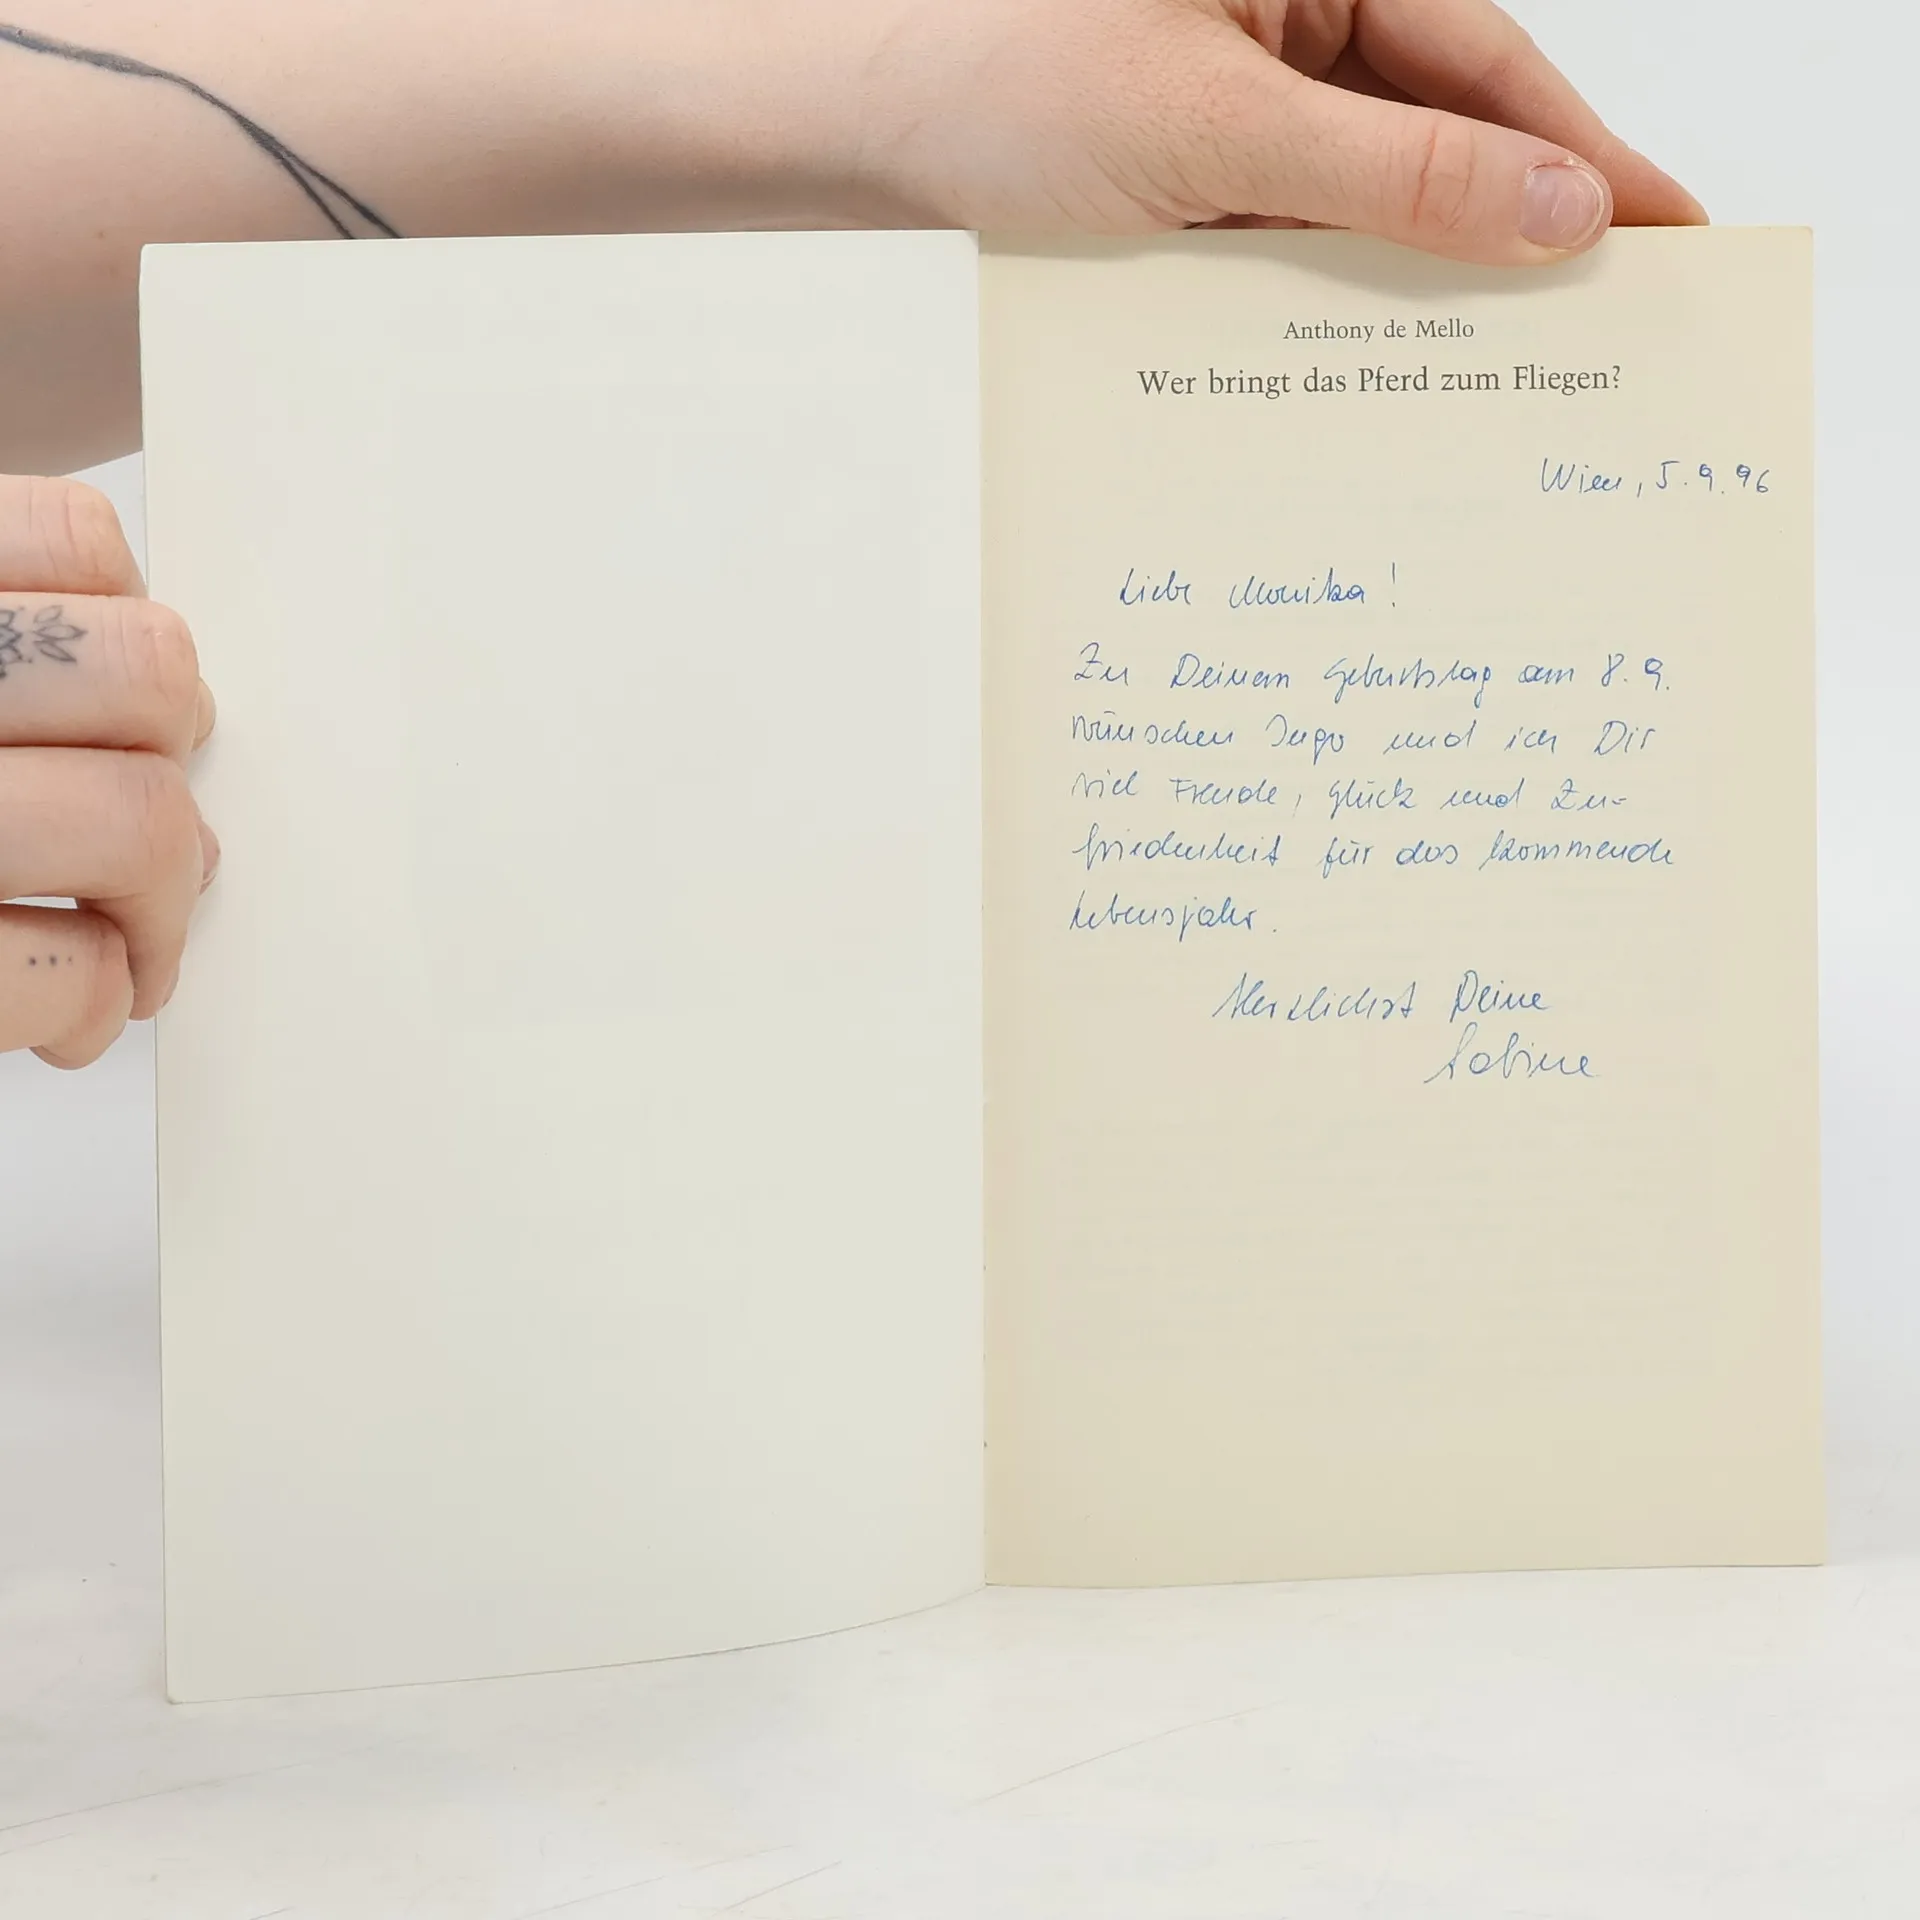 Anthony de Mello
Wer bringt das Pferd zum Fliegen?
Wien, 5.9.96
Liebe Monika!
Zu Deinem Geburtstag am 8.9.
wünschen Ingo und ich Dir
viel Freude, Glück und Zu-
friedenheit für das kommende
Lebensjahr.
Herzlichst Deine
Sabine